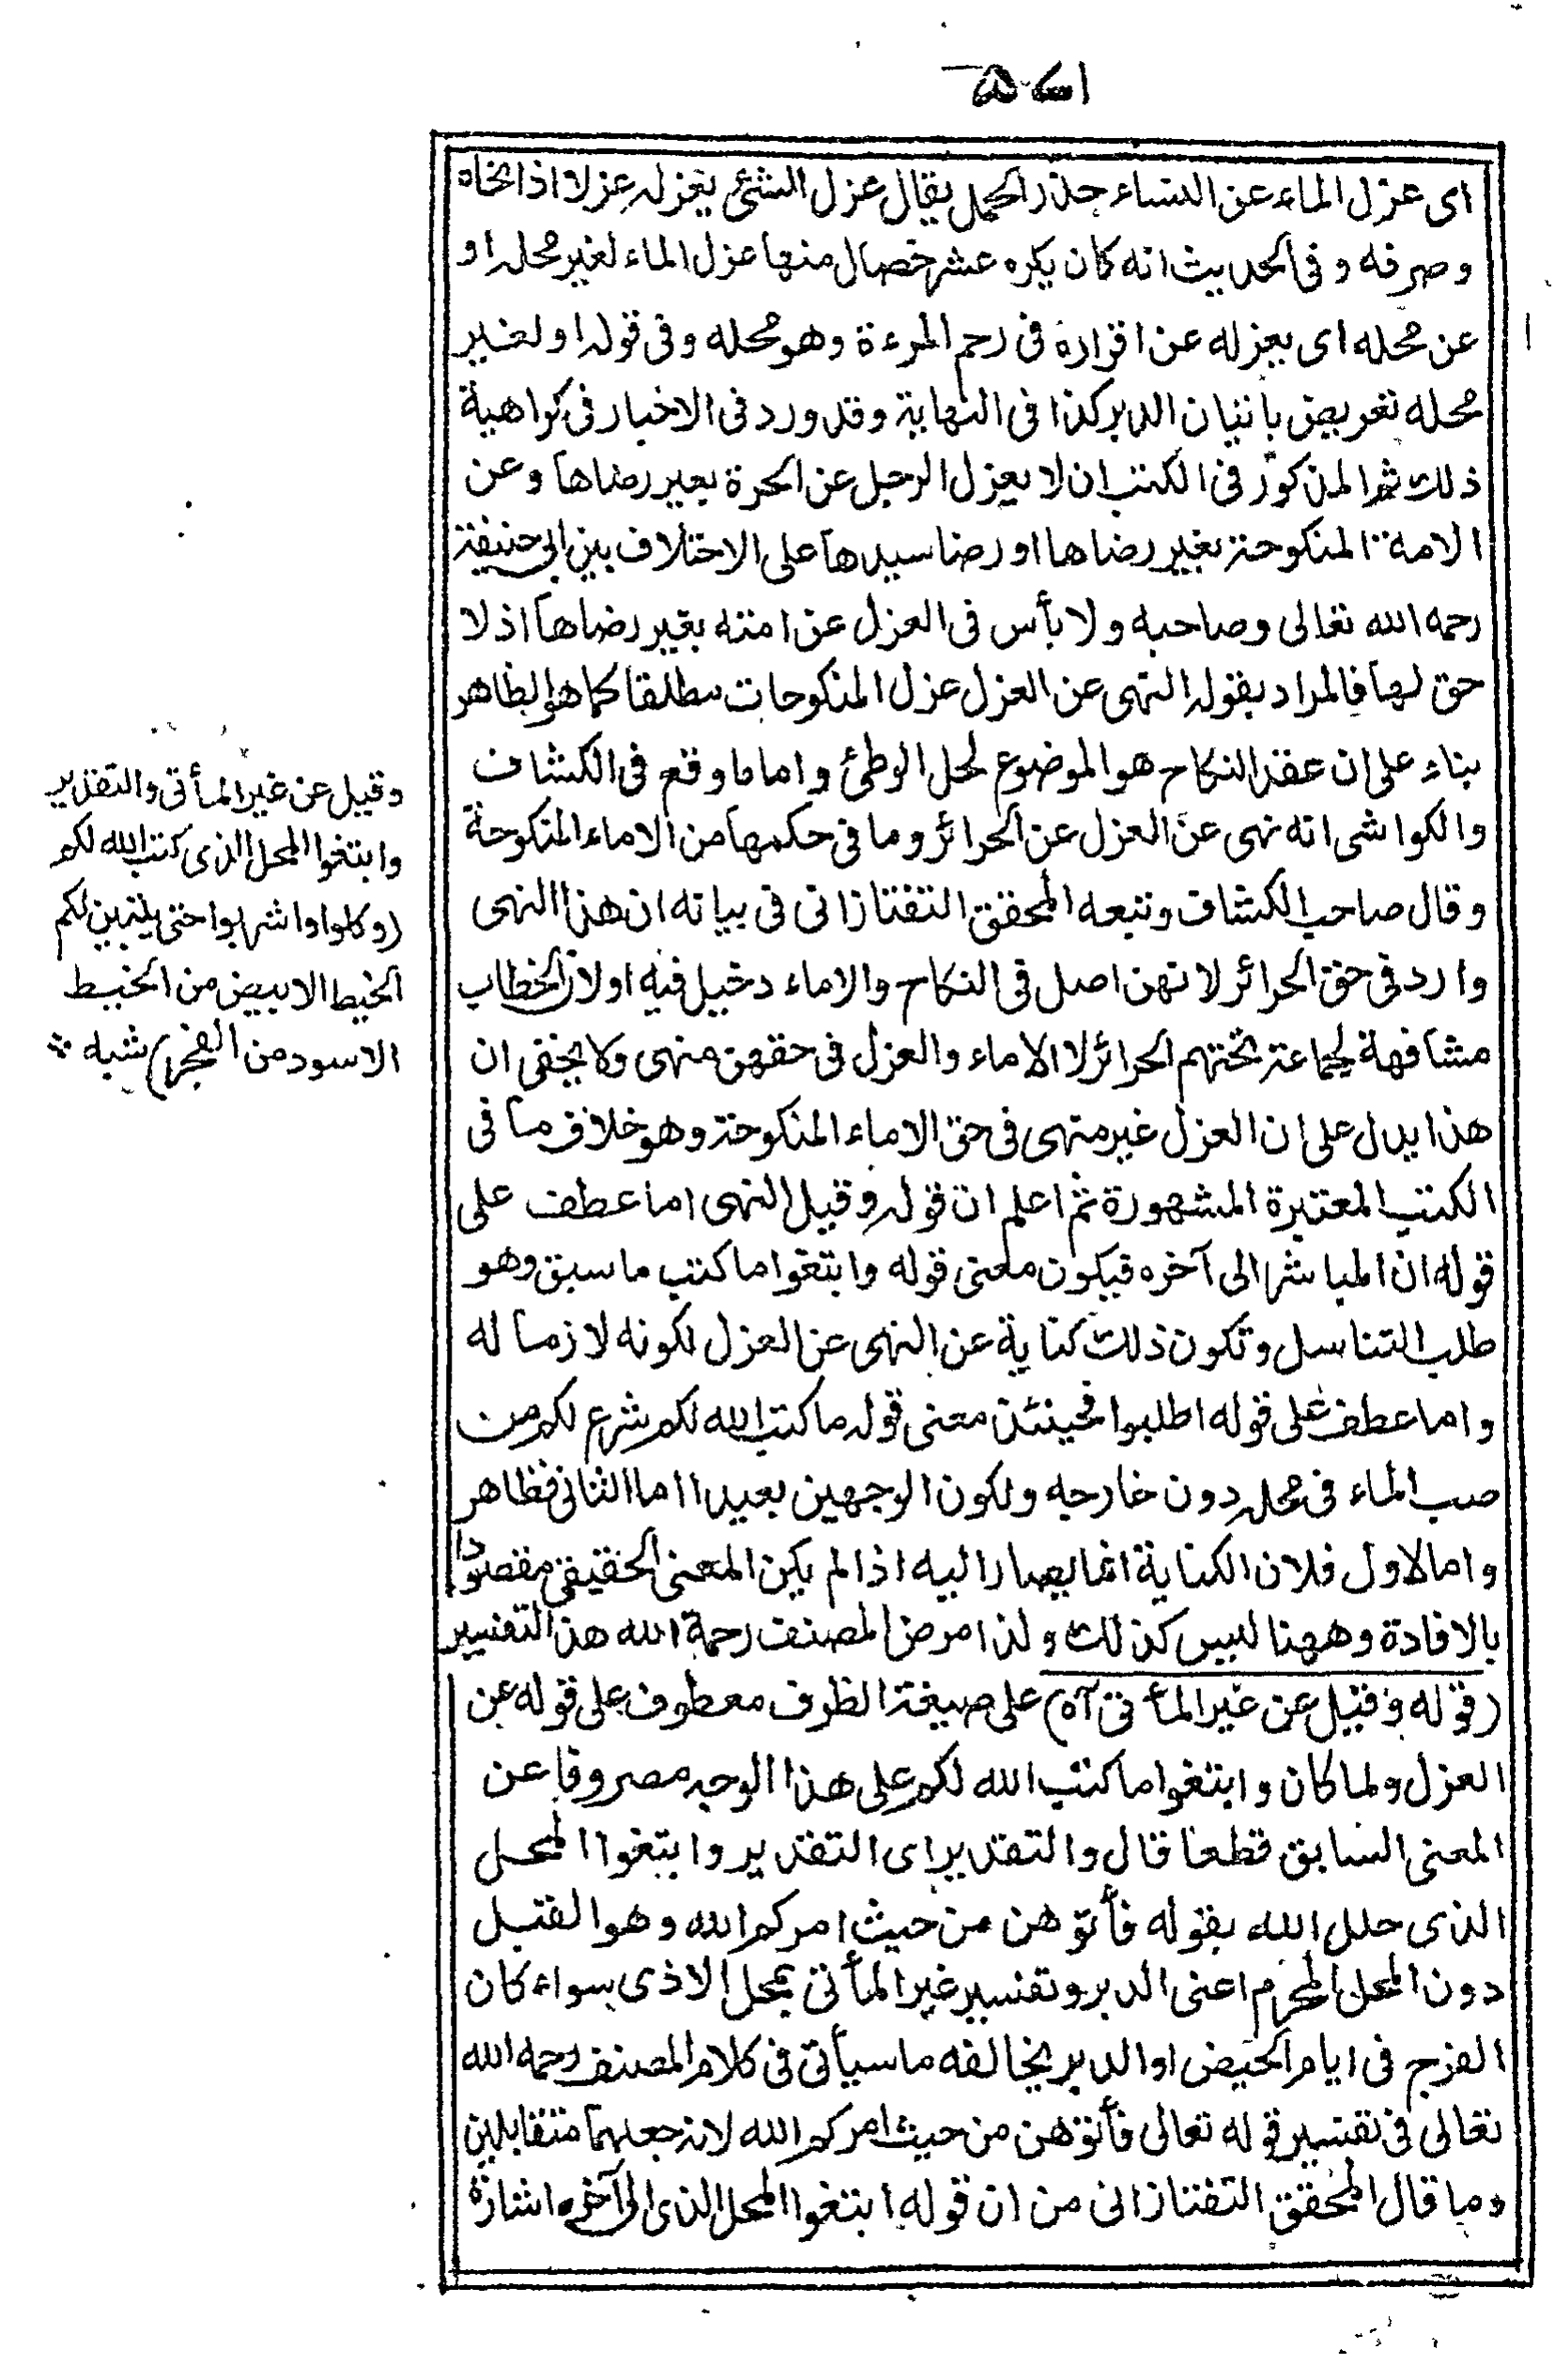 اى عزل الماء عن النساء حذر الحمل يقال عزل الشئ يعزله عزلا اذا نحاه
وصرفه وفى الحديث انه كان يكره عشر خصال منها عزل الماء لغير محله او
عن محله اى يعزله عن اقراره فى رحم المرءة وهو محله وفى قوله او لغير
محله تعريض باتيان الدبر كذا فى النهاية وقد ورد فى الاخبار فى كراهية
ذلك ثم المذكور فى الكتب ان لا يعزل الرجل عن الحرة بغير رضاها وعن
الامة المنكوحة بغير رضاها او رضا سيدها على الاختلاف بين ابى حنيفة
رحمه الله تعالى وصاحبيه ولا بأس فى العزل عن امته بغير رضاها اذ لا
حق لها فالمراد بقوله النهى عن العزل عزل المنكوحات مطلقا كما هو الظاهر
بناء على ان عقد النكاح هو الموضوع لحل الوطئ واما ما وقع فى الكشاف
والكواشى انه نهى عن العزل عن الحرائر وما فى حكمها من الاماء المنكوحة
وقال صاحب الكشاف وتبعه المحقق التفتازانى فى بيانه ان هذا النهى
وارد فى حق الحرائر لانهن اصل فى النكاح والاماء دخيل فيه او لان الخطاب
مشافهة لجماعة تحتهم الحرائر لا الاماء والعزل فى حقهن منهى ولا يخفى ان
هذا يدل على ان العزل غير منهى فى حق الاماء المنكوحة وهو خلاف ما فى
الكتب المعتبرة المشهورة ثم اعلم ان قوله وقيل النهى اما عطف على
قوله ان المباشر الى آخره فيكون معنى قوله وابتغوا ما كتب ما سبق وهو
طلب التناسل وتكون ذلك كناية عن النهى عن العزل لكونه لازما له
واما عطف على قوله اطلبوا فحينئذ معنى قوله ما كتب الله لكم شرع لكم من
صب الماء فى محله دون خارجه ولكون الوجهين بعيدا اما الثانى فظاهر
واما الاول فلان الكناية انما يصار اليه اذا لم يكن المعنى الحقيقى مقصودا
بالافادة وههنا ليس كذلك ولذا مرض المصنف رحمة الله هذا التفسير
(قوله وقيل عن غير المأتى آه) على صيغة الظرف معطوف على قوله عن
العزل ولما كان وابتغوا ما كتب الله لكم على هذا الوجه مصروفا عن
المعنى السابق قطعا قال والتقدير اى التقدير وابتغوا المحل
الذى حلل الله بقوله فأتوهن من حيث امركم الله وهو القبل
دون المحل المحرم اعنى الدبر وتفسير غير المأتى بمحل الاذى سواء كان
الفرج فى ايام الحيض او الدبر يخالفه ما سيأتى فى كلام المصنف رحمه الله
تعالى فى تفسير قوله تعالى فأتوهن من حيث امركم الله لانه جعلهما متقابلين
وما قال المحقق التفتازانى من ان قوله ابتغوا المحل الذى الى آخره اشارة
وقيل عن غير المأتى والتقدير
وابتغوا المحل الذى كتب الله لكم
(وكلوا واشربوا حتى يتبين لكم
الخيط الابيض من الخيط
الاسود من الفجر) شبه